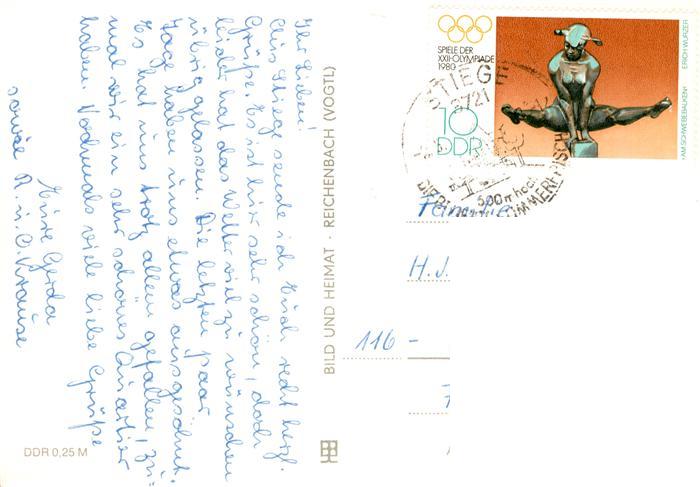 Ihr Lieben!
Aus Stiege sende ich Euch recht herzl.
Grüße. Es ist hier sehr schön, doch
leider hat das Wetter viel zu wünschen
übrig gelassen. Die letzten paar
Tage haben uns etwas ausgesöhnt.
Es hat uns trotz allem gefallen, zu-
mal wir ein sehr schönes Quartier
haben. Nochmals viele liebe Grüße
Eure Gerda
sowie R. u. C. Krause
DDR 0,25 M
BILD UND HEIMAT · REICHENBACH (VOGTL)
SPIELE DER
XXII. OLYMPIADE
1980
10
DDR
»AM SCHWEBEBALKEN«
ERICH WURZER
STIEGE
3721
500 m hoch
Familie
H. J.
116 -